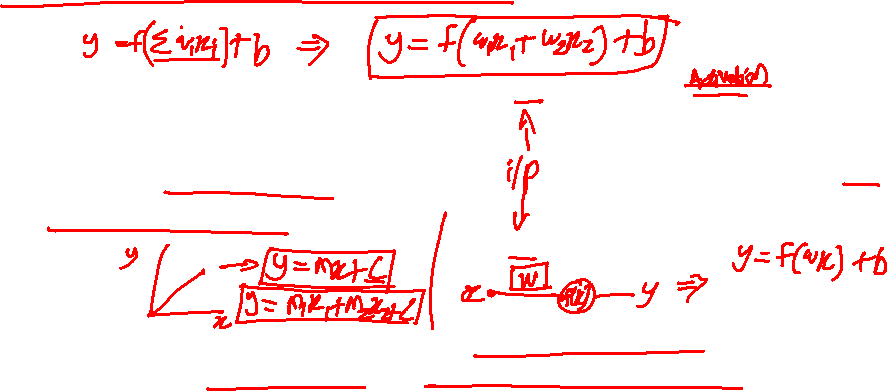 y = f(Σ wᵢxᵢ) + b ⇒ y = f(w₁x₁ + w₂x₂) + b
Activation
i/p
y → y = mx + c
x y = m₁x₁ + m₂x₂ + c
x W f(x) y ⇒ y = f(wx) + b